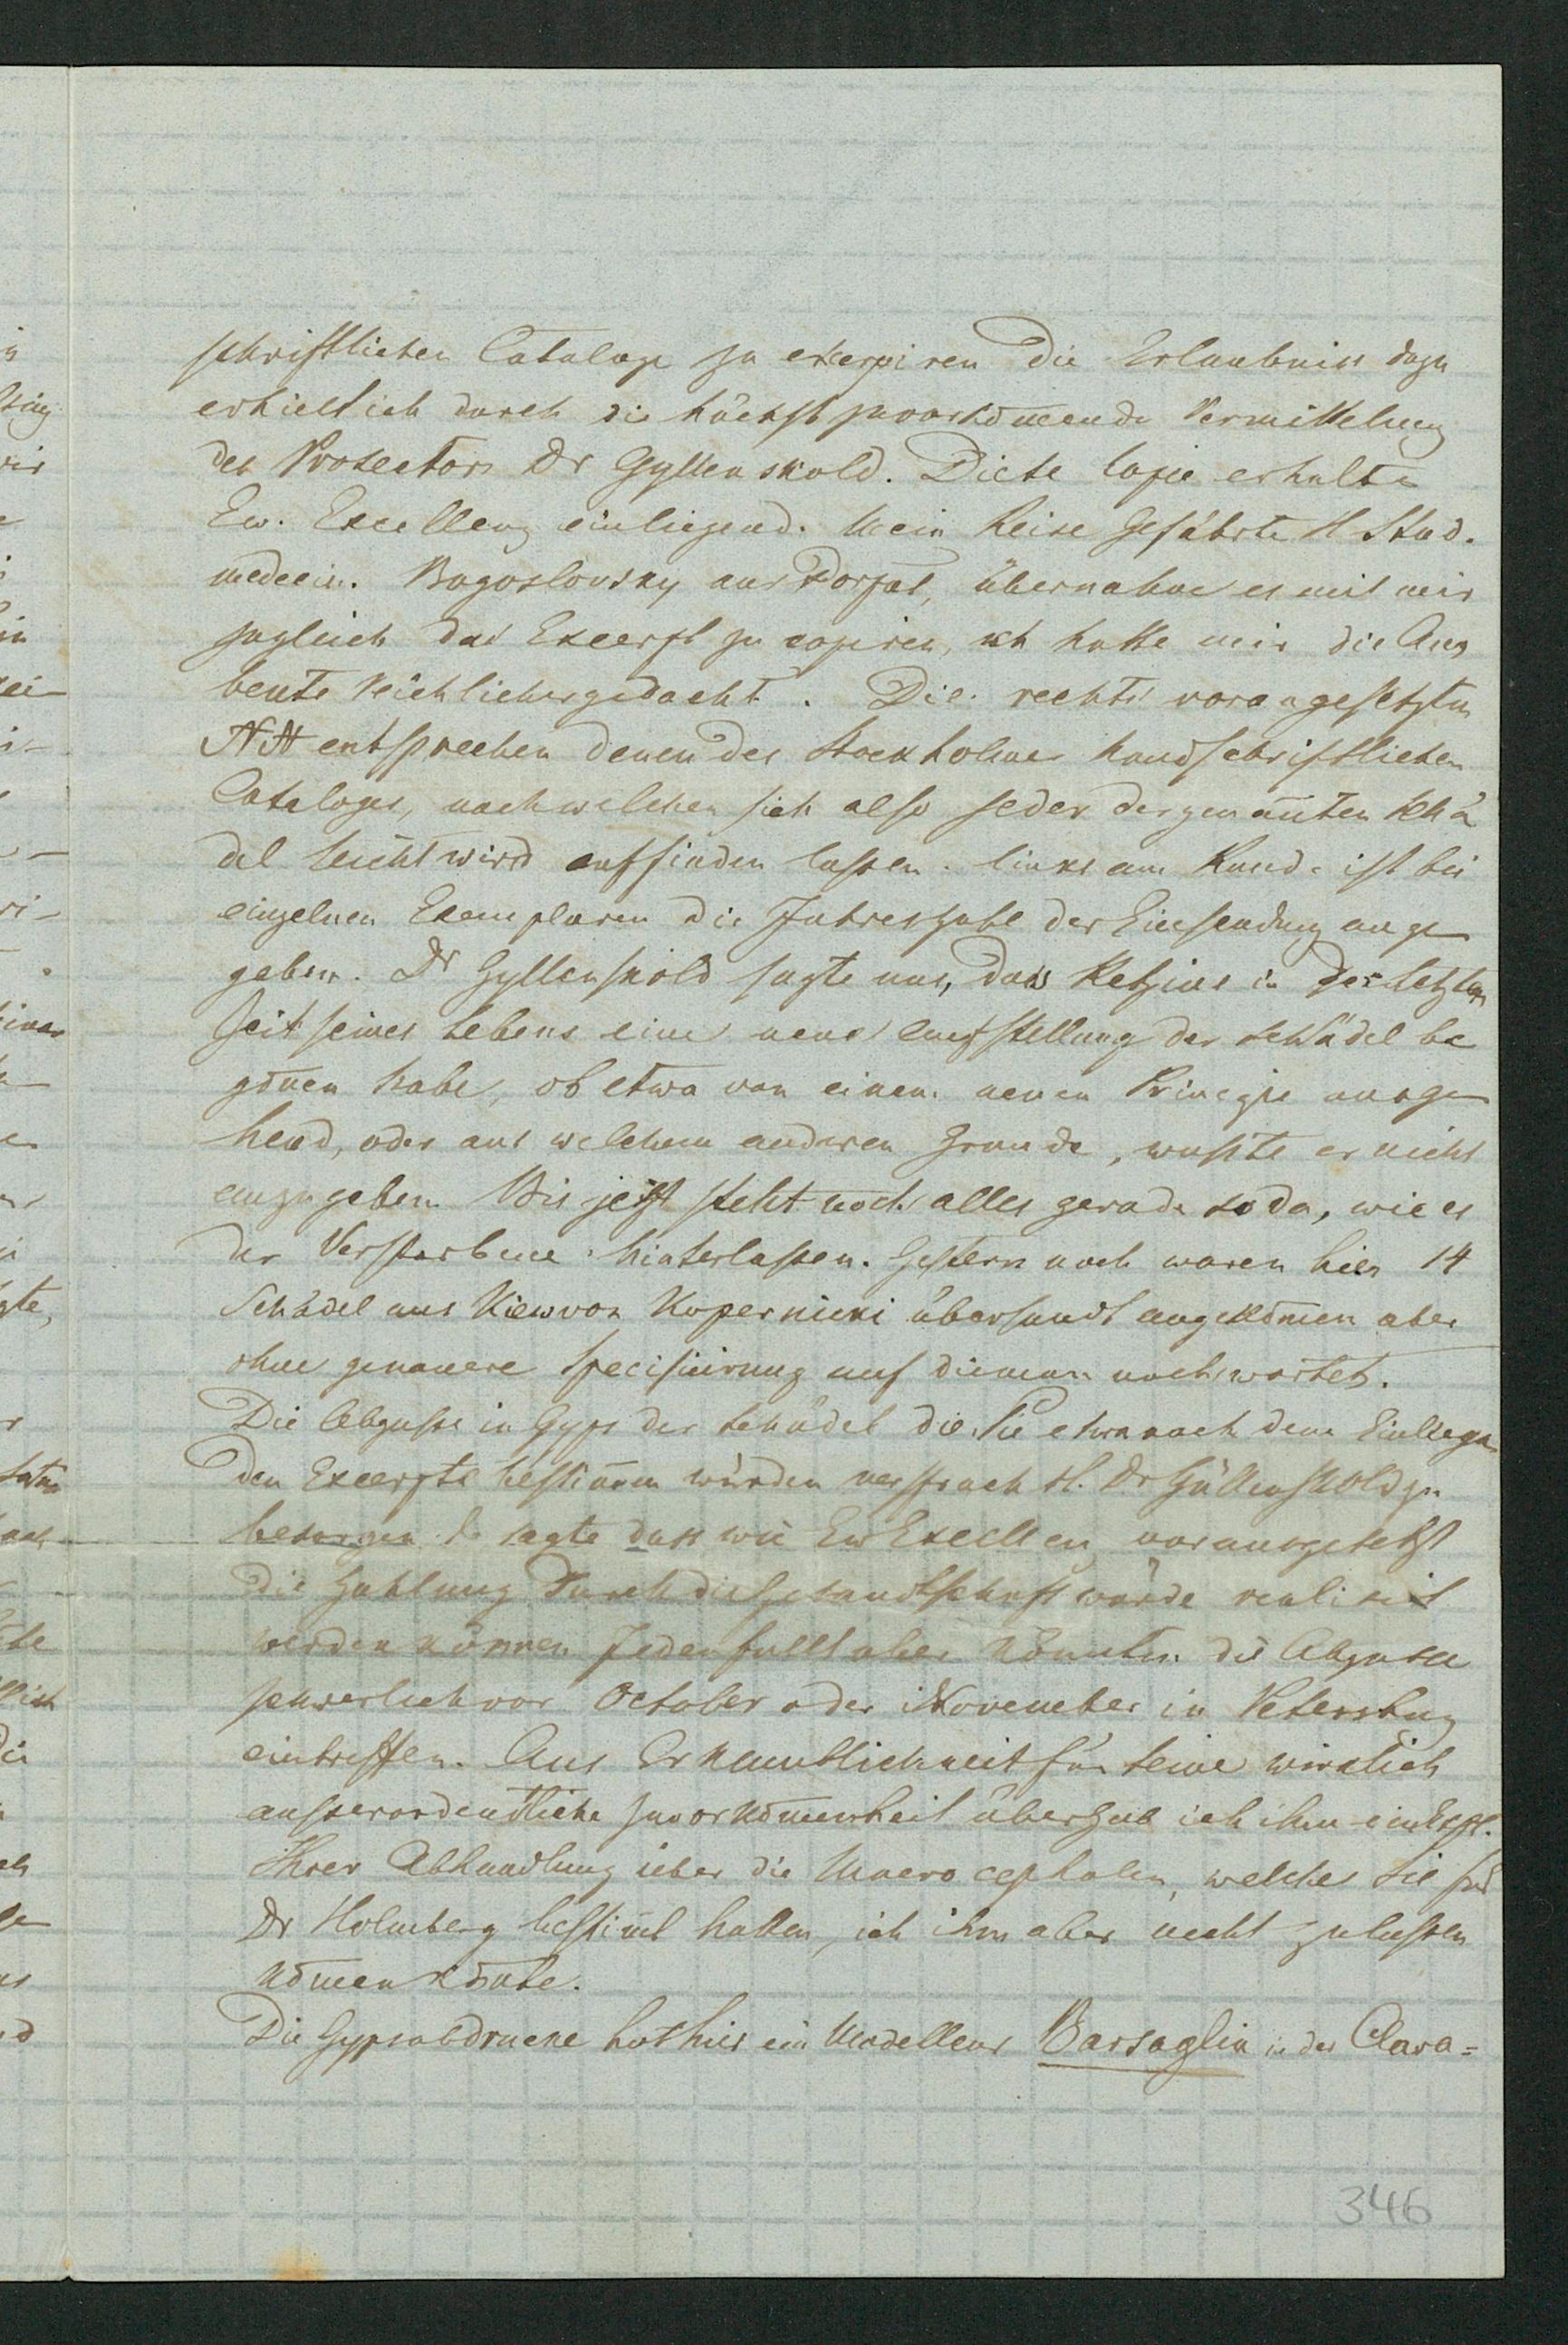 schriftlichen Cataloge zu excerpiren Die Erlaubniss dazu
erhielt ich durch die höchst zuvorkom̅ende Vermittelung
des Prosectors Dr Gyllenskold. Diese Copie erhalte
Ew. Excellenz einliegend. Mein Reise Gefährte H Stud.
medecin. Bogoslovsky aus Dorpat, übernahm es mit mir
zugleich das Excerpt zu copiren, ich hatte mir die Aus
beute reichlicher gedacht. Die rechts vorangesetzten
NN entsprechen denen des Stockholmer handschriftlichen
Cataloges, nach welchen sich also jeder der genan̅ten Schä
del leicht wird auffinden lassen. links am Rande ist bei
einzelnen Exemplaren die Jahreszahl der Einsendung ange
geben. Dr Gyllenskold sagte uns, dass Retzius in der letzten
Zeit seines Lebens eine neue Aufstellung der Schädel be
gon̅en habe, ob etwa von einem neuen Principe ausge
hend, oder aus welchem anderen Grunde, wusste er nicht
anzugeben. Bis jetzt steht noch alles gerade so da, wie es
der Verstorbene hinterlassen. Gestern noch waren hier 14
Schädel aus Kiew von Kopernicki übersandt angekom̅en aber
ohne genauere Specificirung auf die man noch wartet.
Die Abgusse in Gyps der Schädel die Sie etwa nach dem Einliegen
den Excerpte bestim̅en würden versprach H. Dr Güllenskold zu
besorgen. Er sagte dass wie Ew Excellenz vorausgesetzt
die Zahlung durch die Gesandtschaft würde realisirt
werden können Jedenfalls aber könnten die Abgusse
schwerlich vor October oder November in Petersburg
eintreffen. Aus Erkenntlichkeit für seine wirklich
ausserordentliche Zuvorkom̅enheit übergab ich ihm ein Expl.
Ihrer Abhandlung ueber die Macrocephalen, welches Sie für
Dr Holmberg bestim̅t hatten, ich ihm aber nicht zulassen
kom̅en kon̅te.
Die Gypsabdrucke hat hier ein Modelleur Barsaglia in der Clara=
346